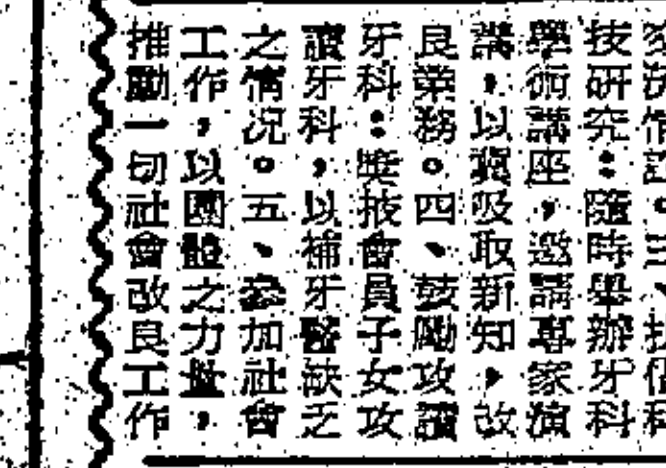 技研究：隨時舉辦牙科
學術講座，邀請專家演
講，以冀吸取新知，改
良業務。四、鼓勵攻讀
牙科：獎掖會員子女攻
讀牙科，以補牙醫缺乏
之情况。五、參加社會
工作，以團體之力量，
推動一切社會改良工作